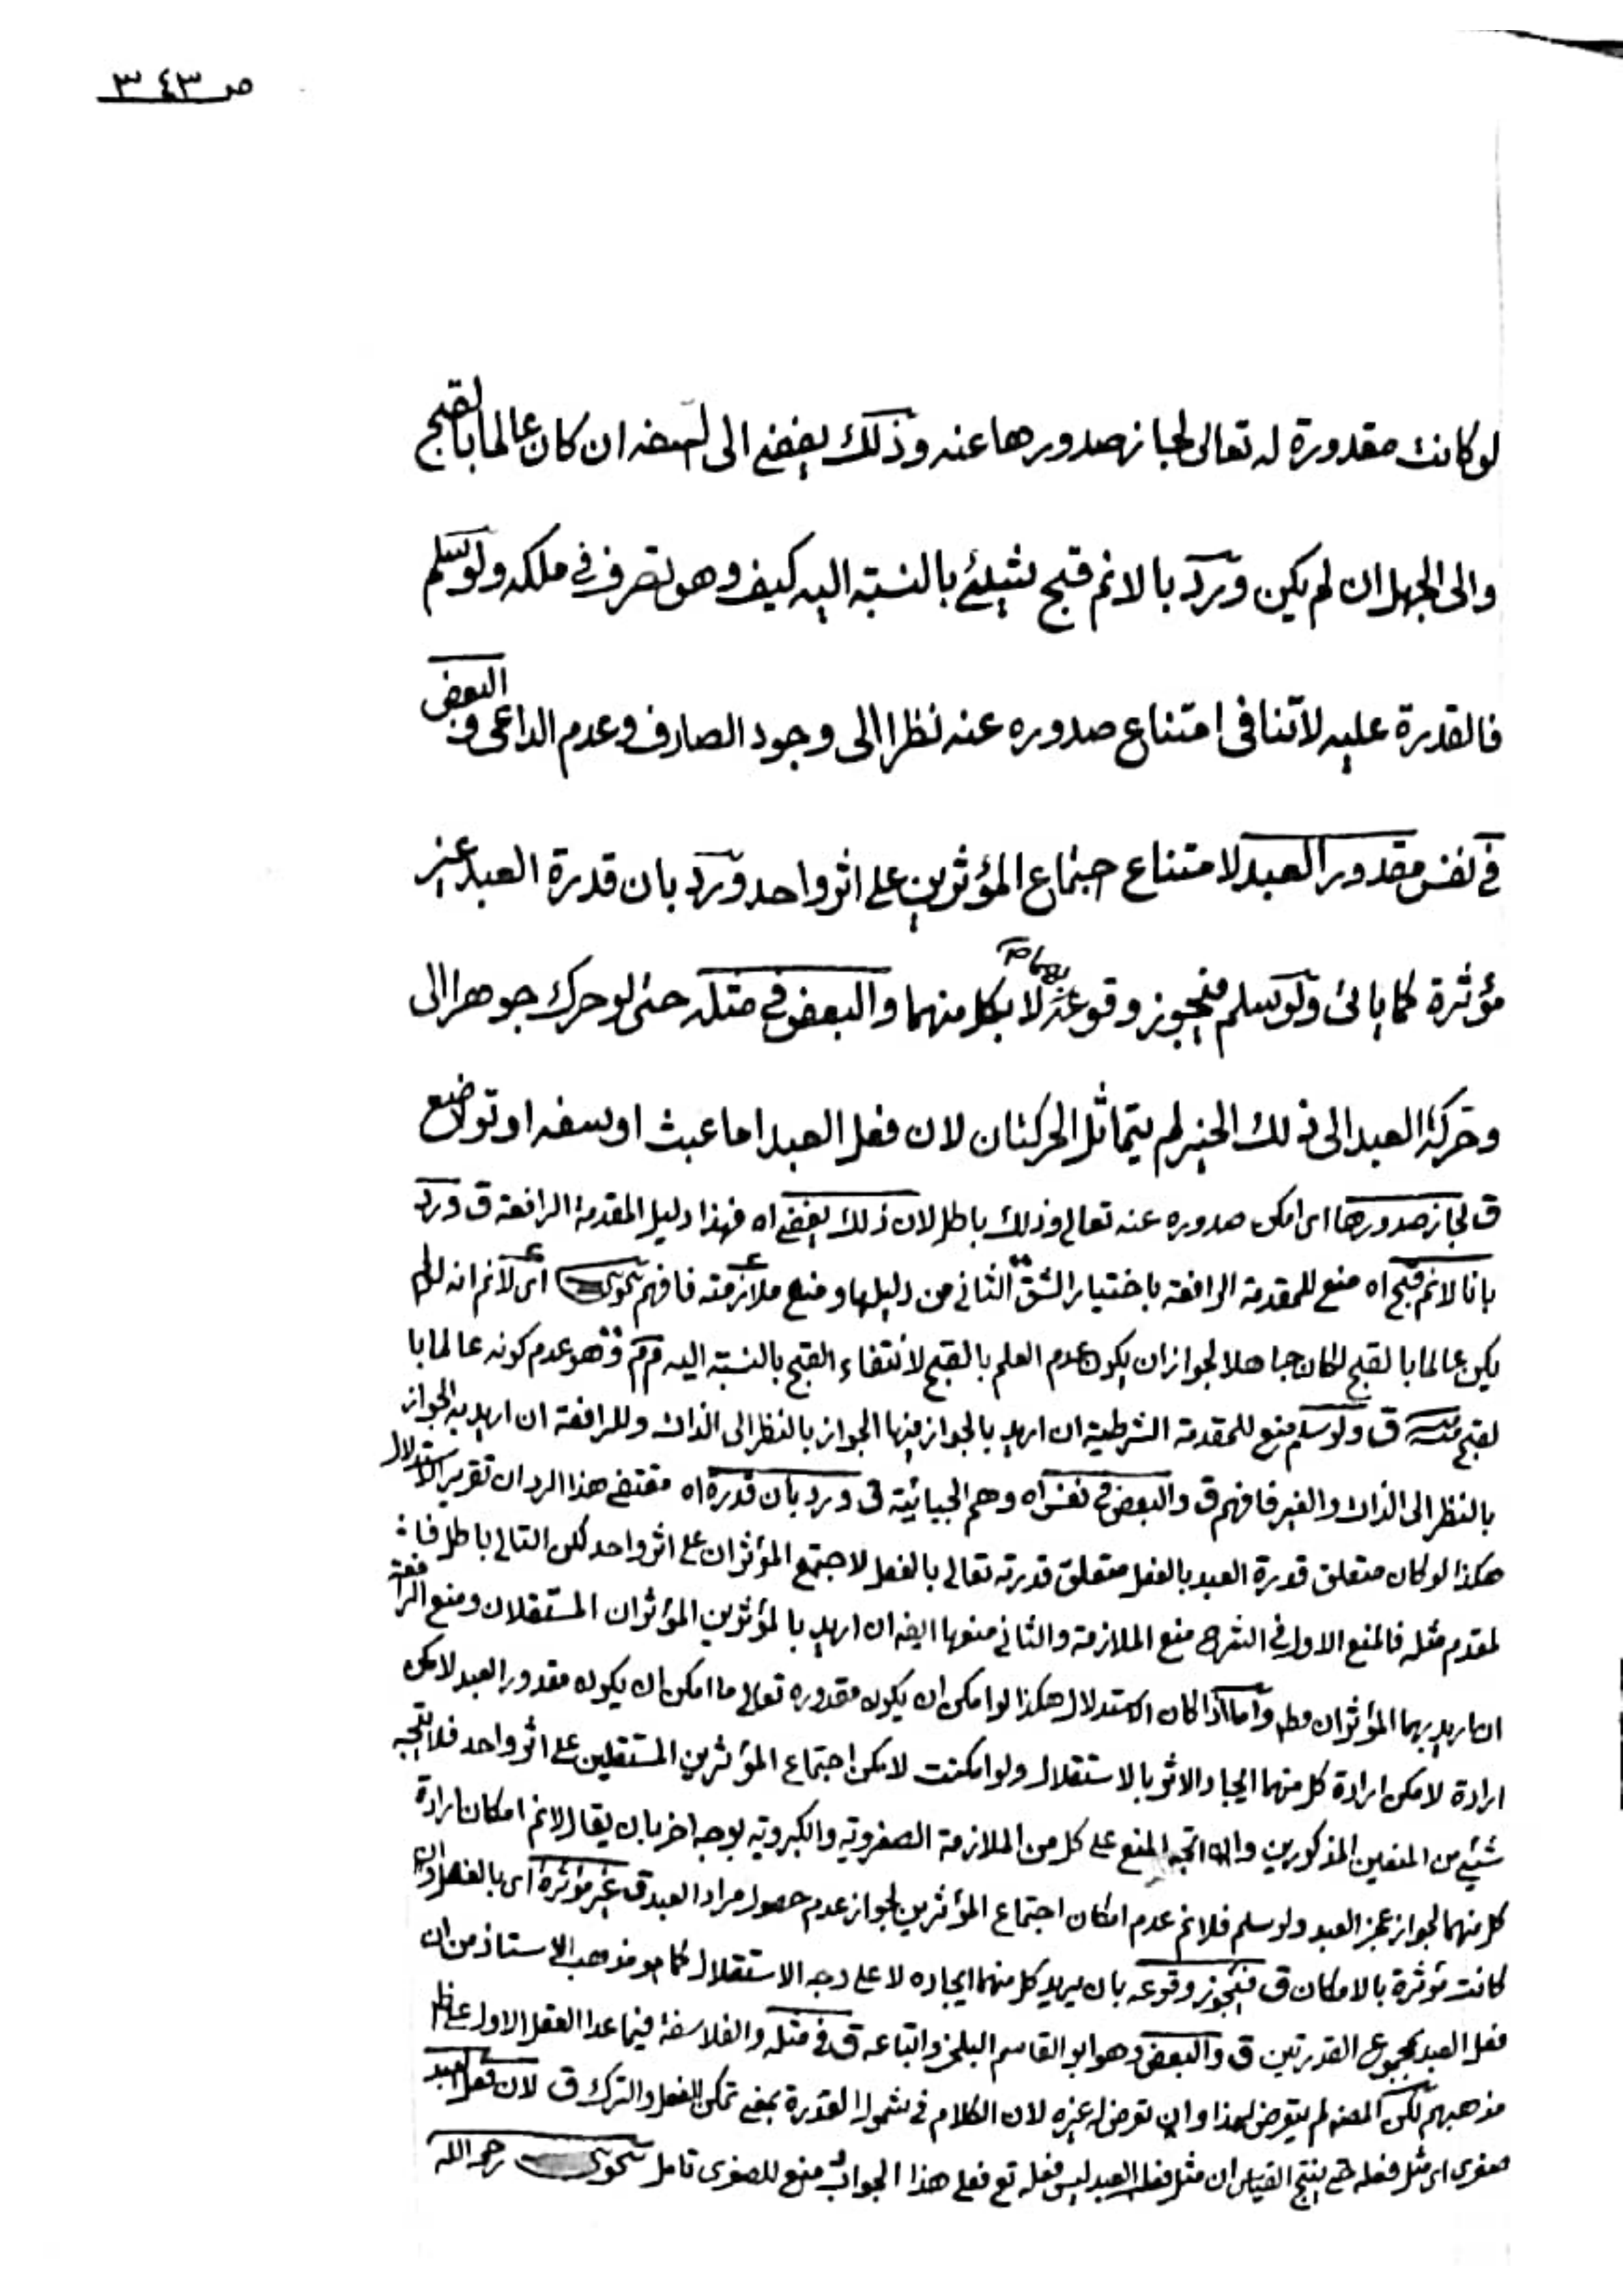 ص ٣٤٣
لو كانت مقدورة له تعالى لجاز صدورها عنه وذلك يفضى الى السفه ان كان عالما بالقبح
والى الجهل ان لم يكن ورد بالانم قبح شيئ بالنسبة اليه كيف وهو تصرف في ملكه ولو سلم
فالقدرة عليه لا تنافى امتناع صدوره عنه نظرا الى وجود الصارف وعدم الداعى والبعض
في نفس مقدور العبد لامتناع اجتماع المؤثرين على اثر واحد ورد بان قدرة العبد غير
مؤثرة كما يأتى ولو سلم فيجوز وقوعه بهما لا بكل منهما والبعض في مثله حتى لو حرك جوهرا الى
وحركة العبد الى ذلك الحيز لم يتماثل الحركتان لان فعل العبد اما عبث او سفه او تواضع
ق لجاز صدورها اى امكن صدوره عنه تعالى وذلك باطل لان ذلك يفضى اه فهذا دليل المقدمة الرافعة ق ورد
بانا لانم قبح اه منع للمقدمة الرافعة باختيار الشق الثانى من دليلها ومنع ملازمته فافهم اى لانم انه لو لم
يكن عالما بالقبح لكان جاهلا لجواز ان يكون عدم العلم بالقبح لانتفاء القبح بالنسبة اليه فهو عدم كونه عالما با
لقبح ق ولو سلم منع للمقدمة الشرطية ان اريد بالجواز فيها الجواز بالنظر الى الذات وللرافعة ان اريد به الجواز
بالنظر الى الذات والغير فافهم ق والبعض في نفس اه وهم الجبائية ق ورد بان قدرة اه مقتضى هذا الرد ان تقرير الاستدلال
هكذا لو كان متعلق قدرة العبد بالفعل متعلق قدرته تعالى بالفعل لاجتمع المؤثران على اثر واحد لكن التالى باطل فا
لمقدم مثله فالمنع الاول في الشرح منع الملازمة والثانى منعها ايضا ان اريد بالمؤثرين المؤثران المستقلان ومنع الرافعة
ان اريد بهما المؤثران مط واما اذا كان الاستدلال هكذا لو امكن ان يكون مقدوره تعالى ما امكن ان يكون مقدور العبد لامكن
ارادة لامكن ارادة كل منهما ايجاد الاثر بالاستقلال ولو امكنت لامكن اجتماع المؤثرين المستقلين على اثر واحد فلا يتجه
شيئ من المنعين المذكورين وان اتجه المنع على كل من الملازمة الصغروية والكبروية بوجه اخر بان يقال لانم امكان ارادة
كل منهما لجواز عجز العبد ولو سلم فلانم عدم امكان اجتماع المؤثرين لجواز عدم حصول مراد العبد ق غير مؤثرة اى بالفعل وان
كانت مؤثرة بالامكان ق فيجوز وقوعه بان يريد كل منهما ايجاده لا على وجه الاستقلال كما هو مذهب الاستاذ من ان
فعل العبد بمجموع القدرتين ق والبعض وهو ابو القاسم البلخى واتباعه ق في مثله والفلاسفة فيما عدا العقل الاول على
مذهبهم لكن المصنف لم يتعرض لهذا وان تعرض له غيره لان الكلام في شمول القدرة بمعنى تمكن الفعل والترك ق لان فعل العبد
صغرى اى مثل فعله حتى ينتج القياس ان مثل فعل العبد ليس فعله تع فعلى هذا الجواب منع للصغرى تامل رحمه الله